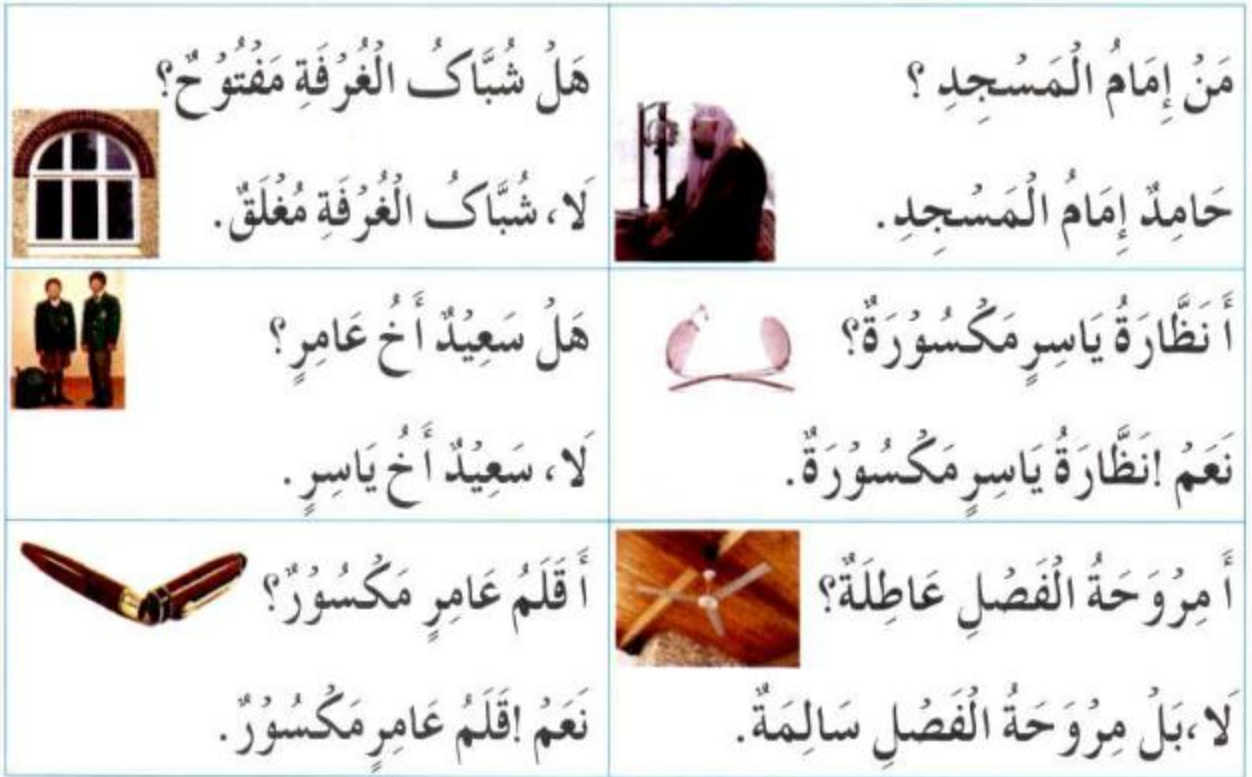 مَنْ إِمَامُ الْمَسْجِدِ ؟
حَامِدٌ إِمَامُ الْمَسْجِدِ.
هَلْ شُبَّاكُ الْغُرْفَةِ مَفْتُوْحٌ؟
لَا، شُبَّاكُ الْغُرْفَةِ مُغْلَقٌ.
أَ نَظَّارَةُ يَاسِرٍ مَكْسُوْرَةٌ؟
نَعَمْ !نَظَّارَةُ يَاسِرٍ مَكْسُوْرَةٌ.
هَلْ سَعِيْدٌ أَخُ عَامِرٍ؟
لَا، سَعِيْدٌ أَخُ يَاسِرٍ.
أَ مِرْوَحَةُ الْفَصْلِ عَاطِلَةٌ؟
لَا،بَلْ مِرْوَحَةُ الْفَصْلِ سَالِمَةٌ.
أَ قَلَمُ عَامِرٍ مَكْسُوْرٌ؟
نَعَمْ !قَلَمُ عَامِرٍ مَكْسُوْرٌ.